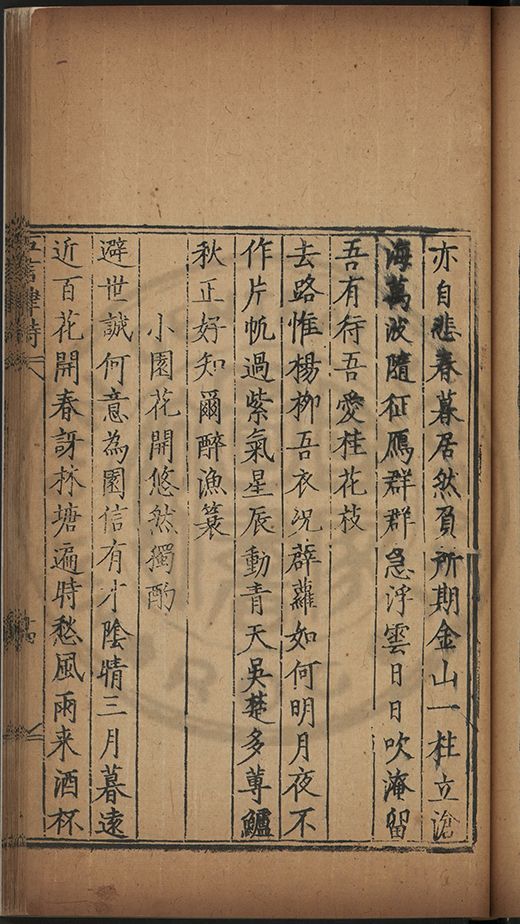 亦自悲春暮居然負所期金山一柱立滄
海萬波隨征鴈群群急浮雲日日吹淹留
吾有待吾愛桂花枝
去路惟楊柳吾衣况薜蘿如何明月夜不
作片帆過紫氣星辰動青天吳楚多蓴鱸
秋正好知爾醉漁簑
小園花開悠然獨酌
避世誠何意為園信有才陰晴三月暮遠
近百花開春訝林塘遍時愁風雨来酒杯
律詩
十四